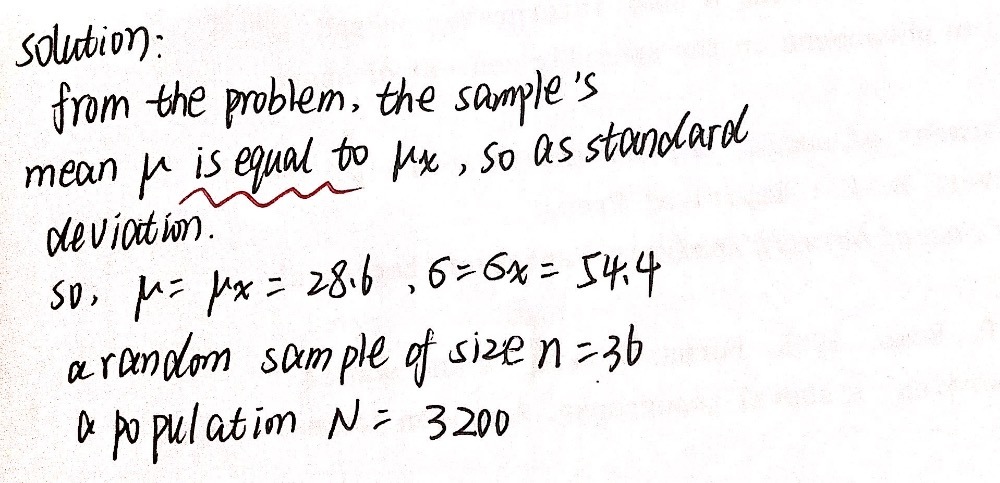 solution:
from the problem, the sample's
mean μ is equal to μx, so as standard
deviation.
so, μ = μx = 28.6, 6 = 6x = 54.4
a random sample of size n = 36
a population N = 3200